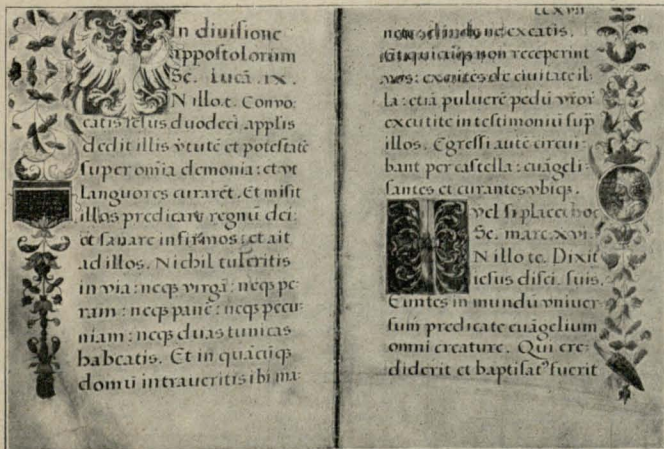 In diuisione
appostolorum
Sc. Lucā .ix.
N illo.t. Conuo
catis iesus duodeci appl̄is
dedit illis v̄tutē et potestatē
super omīa demonia: et vt
languores curarēt. Et misit
illos predicare regnū dei:
et sanare infirmos: et ait
ad illos. Nichil tuleritis
in via: neqꝫ virgā: neqꝫ pe-
ram: neqꝫ panē: neqꝫ pecu-
niam: neqꝫ duas tunicas
habeatis. Et in quācūqꝫ
domū intraueritis ibi ma-
ne exeatis.
Et quicūqꝫ non receperint
vos: exeūtes de ciuitate il-
la: etiā puluerē pedū vr̄or
excutite in testimoniū sup̄
illos. Egressi autē circui-
bant per castella: euāgeli-
santes et curantes vbiqꝫ.
vel si placet hoc
Sc. marc. xvi.
N illo te. Dixit
iesus disci. suis.
Euntes in mundū vniuer-
sum predicate euāgelium
omni creature. Qui cre-
diderit et baptisatꝰ fuerit